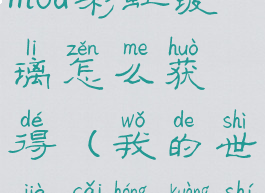 mod彩虹玻
lí zěn me huò
璃怎么获
dé wǒ de shì
得(我的世
jiè cǎi hóng kuàng shí